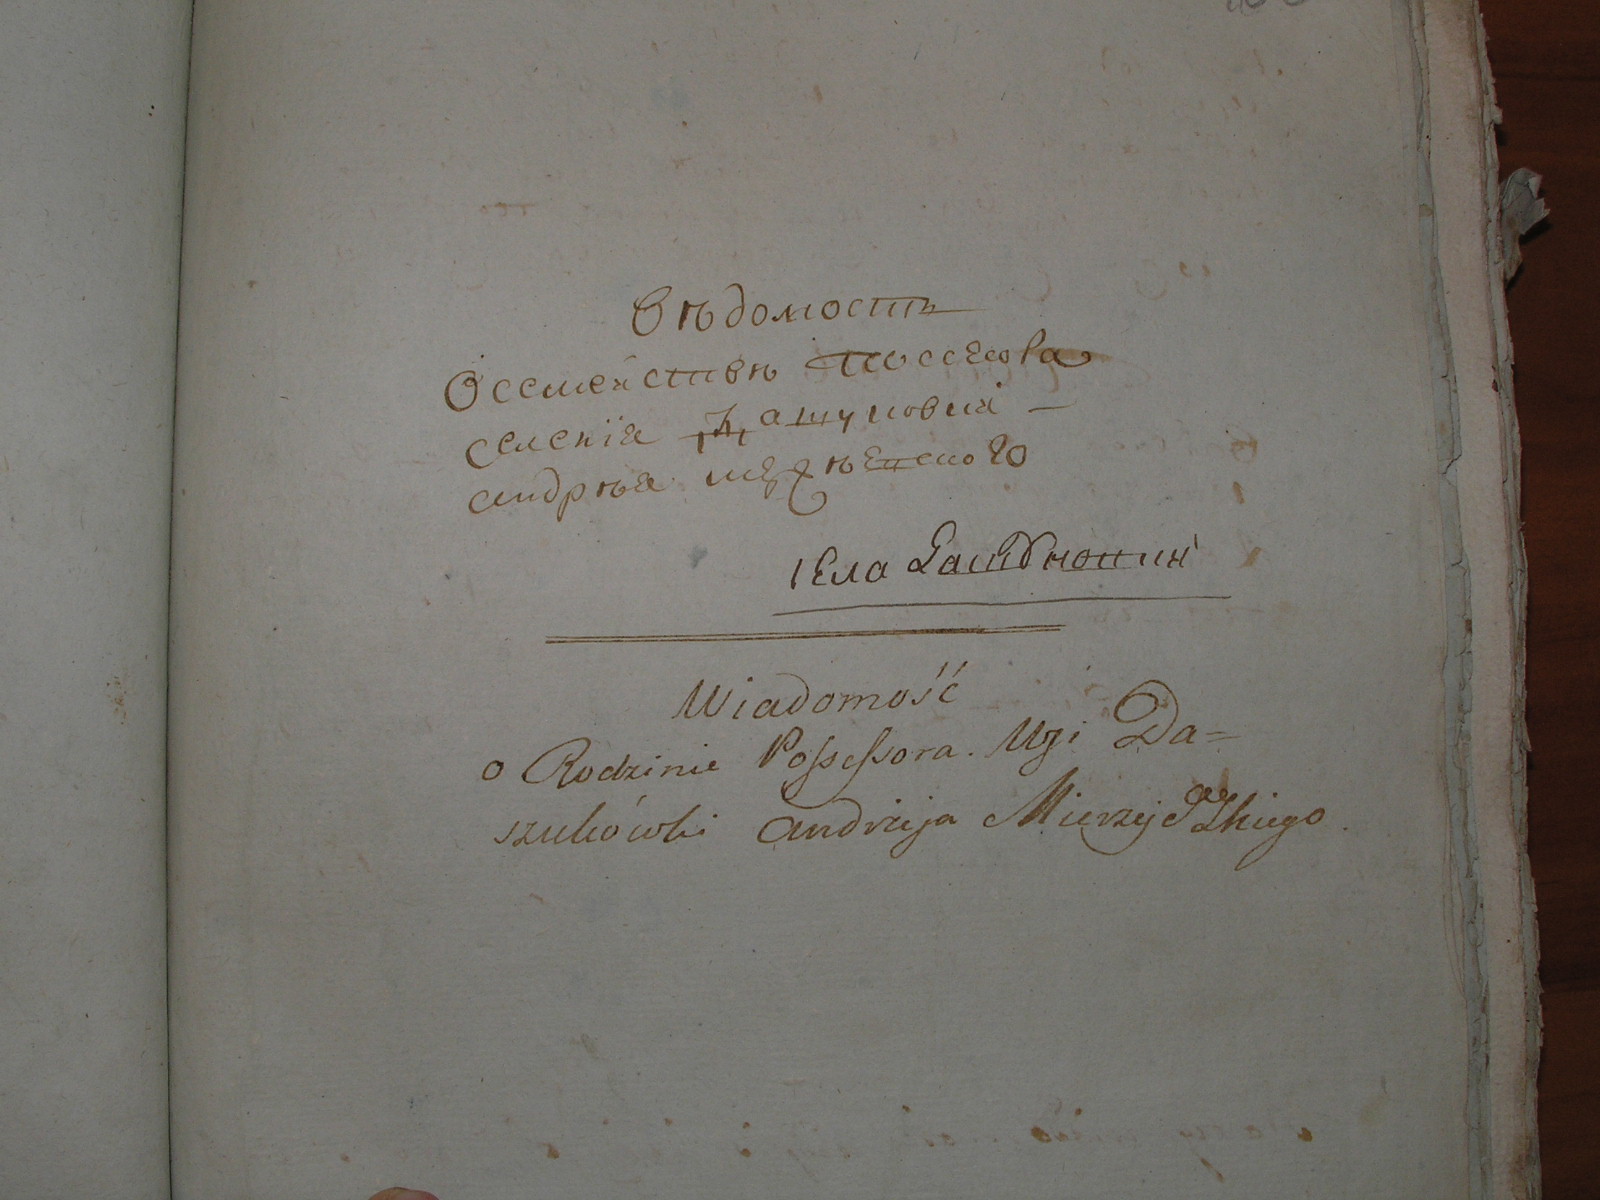 Вѣдомость
О семействѣ Поссесора
селенія Дашуковки —
андрѣя мержѣевского
села Дашуковки
Wiadomość
o Rodzinie Possessora. Wsi Da=
szukówki Andrzeja Mierzejewskiego.